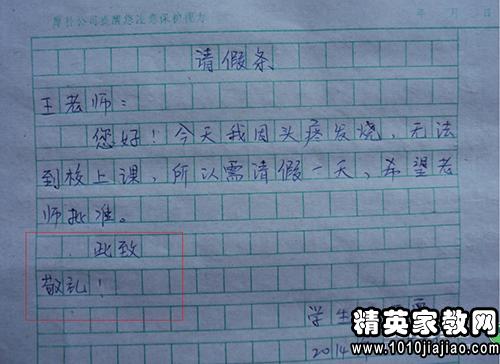 年 月 日
请假条
王老师：
您好！今天我因头疼发烧，无法
到校上课，所以需请假一天，希望老
师批准。
此致
敬礼！
学生
2014
精英家教网
www.1010jiajiao.com